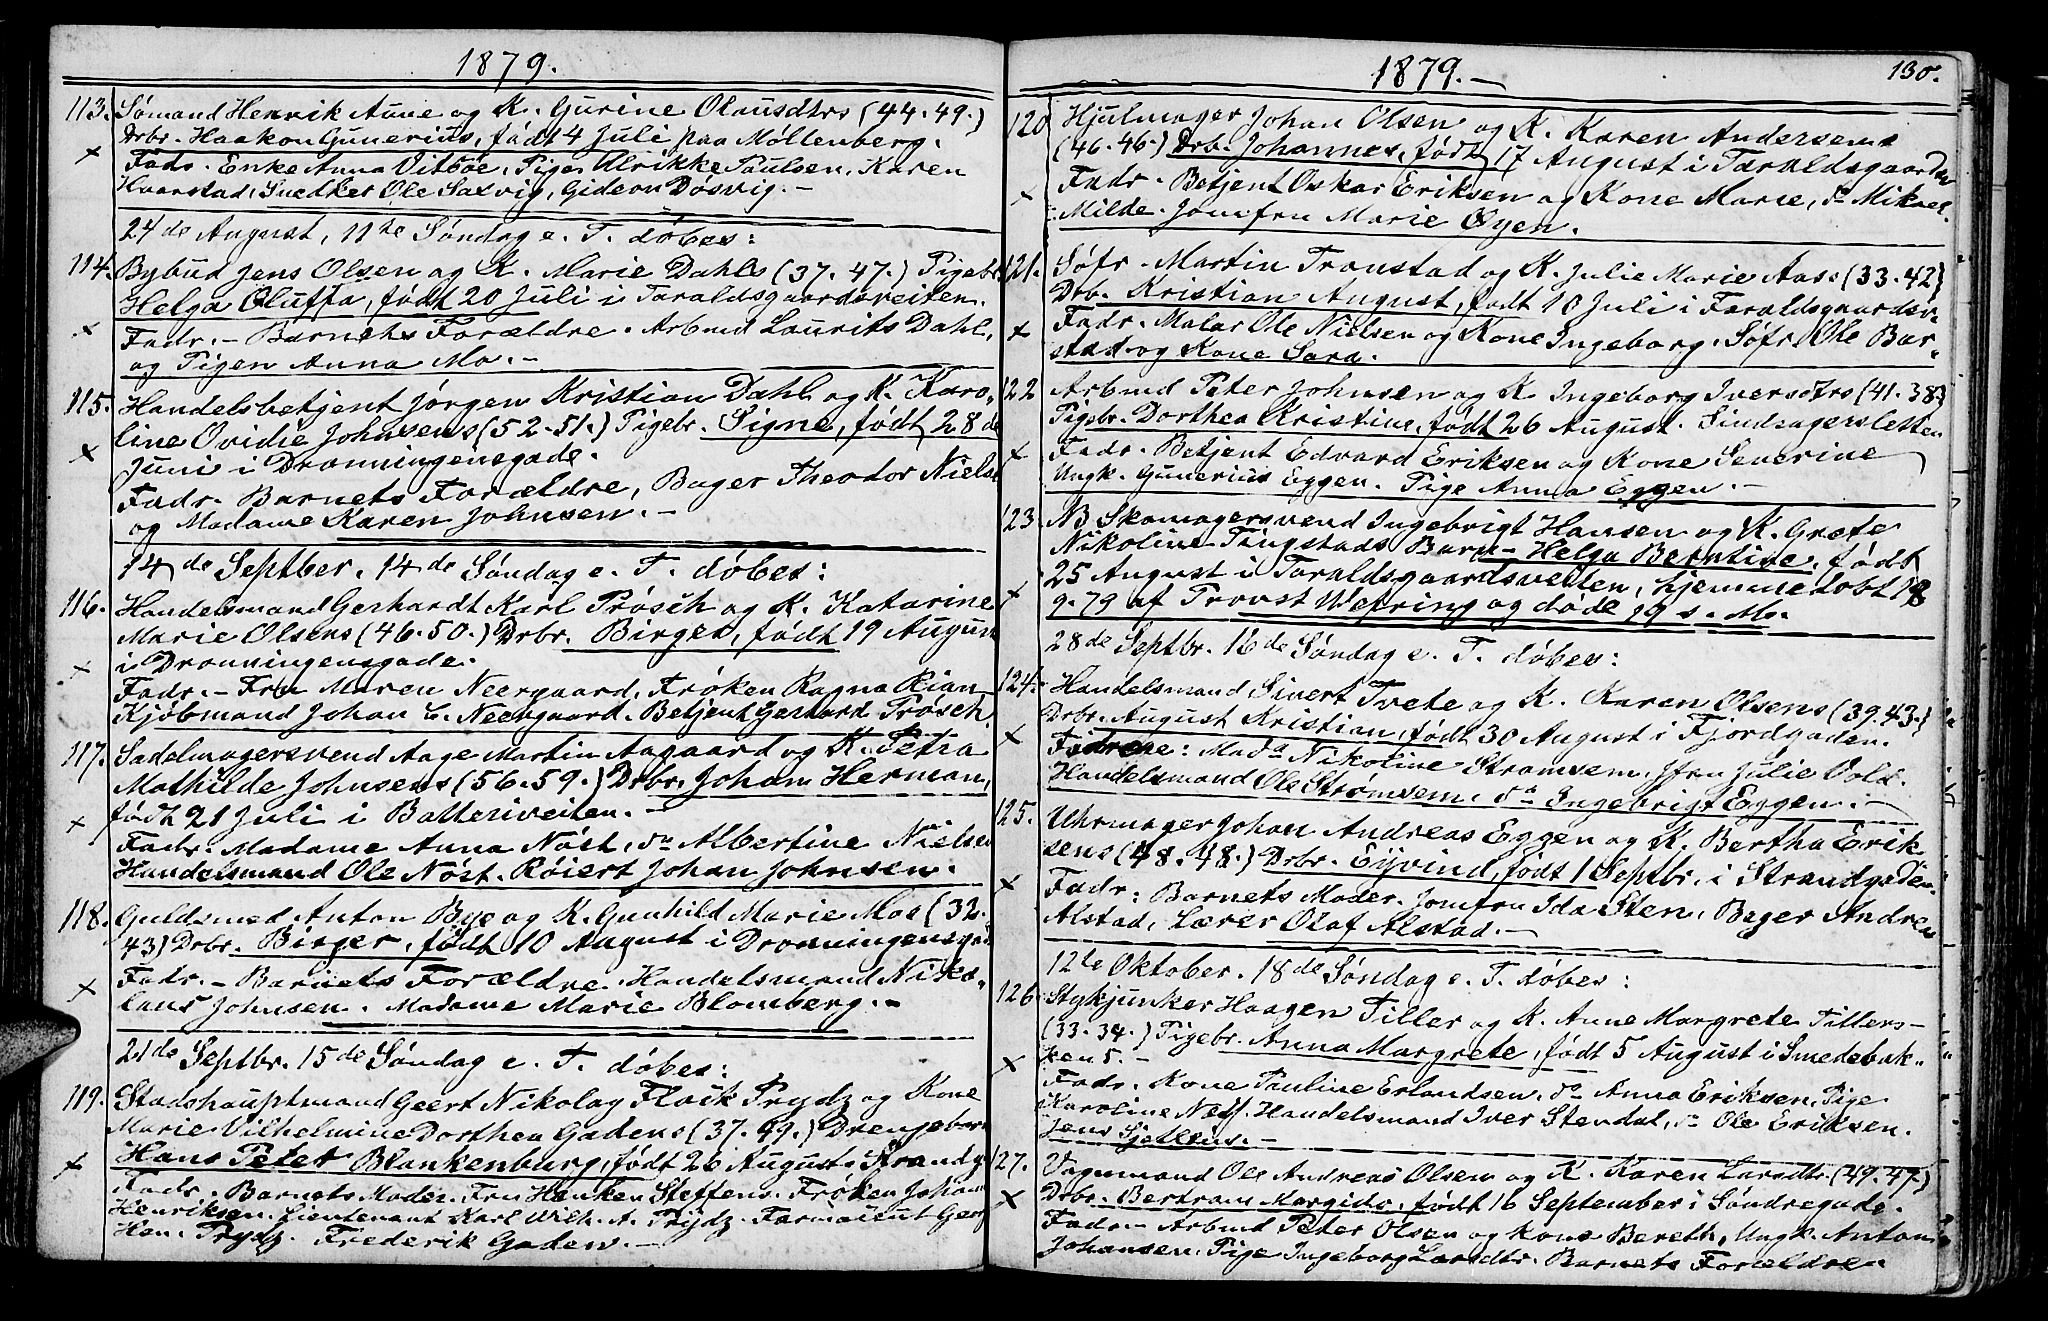 1879.
113. Sømand Henrik Aune og K. Gurine Olausdtrs (44.49.)
Drbr. Haakon Gunerius, født 4 Juli paa Møllenberg.
Fadr. Enke Anna Vitsøe, Pige Ulrikke Paulsen, Karen
Hvarstad, Snedker Ole Saxvig, Gideon Døsvig.-
24de August, 11te Søndag e. T. døbes:
114. Bybud Jens Olsen og K. Marie Dahls (37.47.) Pigebr.
Helga Oluffa, født 20 Juli i Taraldsgaardsveiten.
Fadr.- Barnets Forældre. Arbmd Laurits Dahl,
og Pigen Anna Mo.-
115. Handelsbetjent Jørgen Kristian Dahl og K. Karo-
line Ovidie Johnsens (52.51.) Pigebr. Signe, født 28de
Juni i Dronningensgade.
Fadr. Barnets Forældre, Bager Theodor Niels
og Madame Karen Johnsen.-
14de Septber. 14de Søndag e. T. døbes:
116. Handelsmand Gerhardt Karl Prøsch og K. Katarine
Marie Olsens (46.50.) Drbr. Birger, født 19 August
i Dronningensgade.
Fadr.- Fru Maren Neergaard, Frøken Ragna Rian-
Kjøbmand Johan C. Neergaard. Betjent Gerhard Prøsch
117. Sadelmagersvend Aage Martin Aagaard og K. Petra
Mathilde Johnsens (56.59.) Drbr. Johan Herman,
født 21 Juli i Batteriveiten.-
Fadr. Madame Anna Nøst, do Albertine Nielsen
Handelsmand Ole Nøst. Røiert Johan Johnsen.
118. Guldsmed Anton Bye og K. Gunhild Marie Moe (32.
43) Drbr. Birger, født 10 August i Dronningensgade
Fadr.- Barnets Forældre. Handelsmand Niko-
laus Johnsen. Madame Marie Blomberg.-
21de Septbr. 15de Søndag e. T. døbes:
119. Stadshauptmand Geert Nikolay Floik Prydz og Kone
Marie Vilhelmine Dorthea Gadens (37.49.) Drengebarn
Hans Peter Blankenburg, født 26 August i Strandg
Fadr. Barnets Moder. Fru Henken Steffens. Frøken Johan
Henriksen. Lieutenant Karl Wilh. A. Prydz. Farmaceut Georg
Hen. Prydz. Frederik Gaden.-
1879.- 130.
120 Hjulmager Johan Olsen og K. Karen Andersens
(46.46.) Drb. Johannes, født 17 August i Taraldsgaardsv
Fadr. Betjent Oskar Eriksen og Kone Marie, do Mikael
Milde. Jomfru Marie Øyen.
121. Søfr. Martin Tronstad og K. Julie Marie Aass (33.42)
Drb. Kristian August, født 10 Juli i Taraldsgaardsv.
Fadr. Malar Ole Nielsen og Kone Ingeborg. Søfr. Ole Bar-
stad og Kone Sara.
122 Arbmd Peter Johnsen og K. Ingeborg Iversdtrs (41.38.)
Pigebr. Dorthea Kristine, født 26 August. Sindsagersletten
Fadr. Betjent Edvard Eriksen og Kone Severine
Ungk. Gunerius Eggen. Pige Anna Eggen.-
123. NB Skomagersvend Ingebrigt Hansen og K. Grete
Nikoline Tingstads Barn- Helga Berntine, født
25 August i Taraldsgaardsveiten, hjemmedøbt 18
9.79 af Provst Wexring og døde 19 s. Md.
28de Septbr. 16de Søndag e. T. døbes:
124. Handelsmand Sivert Tvete og K. Karen Olsens (39.43.)
Drbr. August Kristian, født 30 August i Fjordgaden.
Faddrene: Mada Nikoline Strømsem, Jfru Julie Vold.
Handelsmand Ole Strømsem. do Ingebrigt Eggen.-
125. Uhrmager Johan Andreas Eggen og K. Bertha Erik
sens (48.48.) Drbr. Eyvind, født 1 Septbr. i Strandgaden.
Fadr: Barnets Moder. Jomfru Ida Sten, Bager Andreas
Alstad, Lærer Olaf Alstad.-
12te Oktober. 18de Søndag e. T. døbes:
126. Stykjunker Haagen Tiller og K. Anne Margrete Tillers-
(33.34.) Pigebr. Anna Margrete, født 5 August i Smedebak-
ken 5.-
Fadr. Kone Pauline Erlandsen. do Anna Eriksen, Pige
Karoline Næss. Handelsmand Iver Stendal, do Ole Eriksen.
Jens Sjetlens.-
127. Vognmand Ole Andreas Olsen og K. Karen Larsdtr (49.47.)
Drbr. Bertram Margido, født 16 September i Søndregade.
Fadr.- Arbmd Peter Olsen og Kone Bereth, Ungk. Anton
Johansen. Pige Ingeborg Larsdtr. Barnets Forældre.